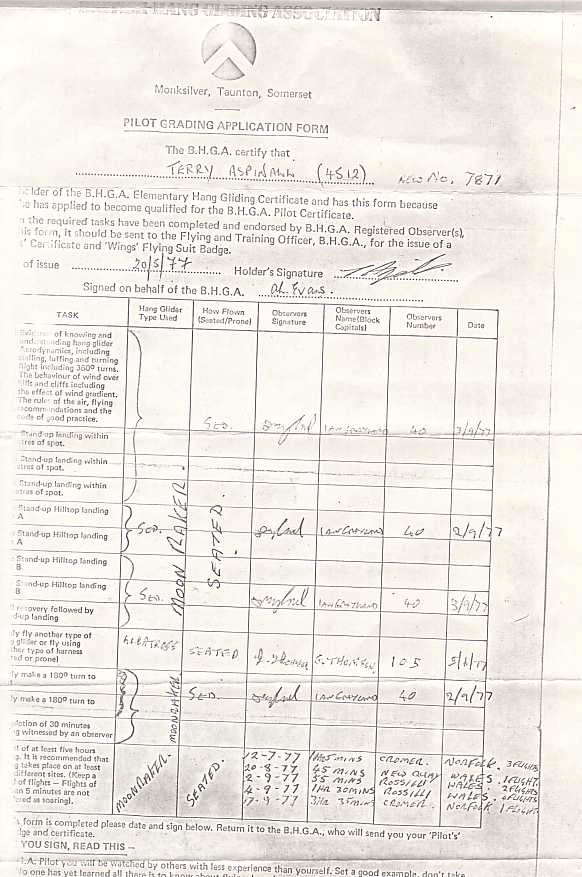 HANG GLIDING ASSOCIATION
Monksilver, Taunton, Somerset
PILOT GRADING APPLICATION FORM
The B.H.G.A. certify that
TERRY ASPINALL (4512) NEW NO. 7871
lder of the B.H.G.A. Elementary Hang Gliding Certificate and has this form because
has applied to become qualified for the B.H.G.A. Pilot Certificate.
n the required tasks have been completed and endorsed by B.H.G.A. Registered Observer(s),
is form, it should be sent to the Flying and Training Officer, B.H.G.A., for the issue of a
' Certificate and 'Wings' Flying Suit Badge.
of issue 20/5/77 Holder's Signature
Signed on behalf of the B.H.G.A. Evans.
TASK Hang Glider Type Used How Flown (Seated/Prone) Observers Signature Observers Name (Block Capitals) Observers Number Date
of knowing and
understanding hang glider
aerodynamics, including
stalling, luffing and turning
flight including 360º turns.
The behaviour of wind over
hills and cliffs including
the effect of wind gradient.
The rules of the air, flying
recommendations and the
code of good practice.
SED. 40 3/9/77
Stand-up landing within
tres of spot.
Stand-up landing within
tres of spot.
Stand-up landing within
tres of spot.
MOONRAKER SEATED.
Stand-up Hilltop landing
A
Stand-up Hilltop landing SED. 40 2/9/77
A
Stand-up Hilltop landing
B
Stand-up Hilltop landing
B SED. 40 3/9/77
recovery followed by
d-up landing
fy fly another type of
glider or fly using
ther type of harness
ed or prone)
ALBATROSS SEATED 105
ly make a 180º turn to
ly make a 180º turn to SED. 40 2/9/77
MOONRAKER
letion of 30 minutes
g witnessed by an observer
t of at least five hours
g. It is recommended that
g takes place on at least
different sites. (Keep a
of flights – Flights of
an 5 minutes are not
ed as soaring).
MOONRAKER. SEATED.
12-7-77 MINS CROMER. NORFOLK. 3 FLIGHTS
20-8-77 45 MINS NEW QUAY WALES. 1 FLIGHT.
2-9-77 55 MINS ROSSILLI WALES. 2 FLIGHTS
4-9-77 1HR 30MINS ROSSILLI WALES. FLIGHTS
17-9-77 3HR 35MINS CROMER. NORFOLK 1 FLIGHT
form is completed please date and sign below. Return it to the B.H.G.A., who will send you your 'Pilot's'
dge and certificate.
YOU SIGN, READ THIS –
.A. Pilot you will be watched by others with less experience than yourself. Set a good example, don't take
o one has yet learned all there is to know about